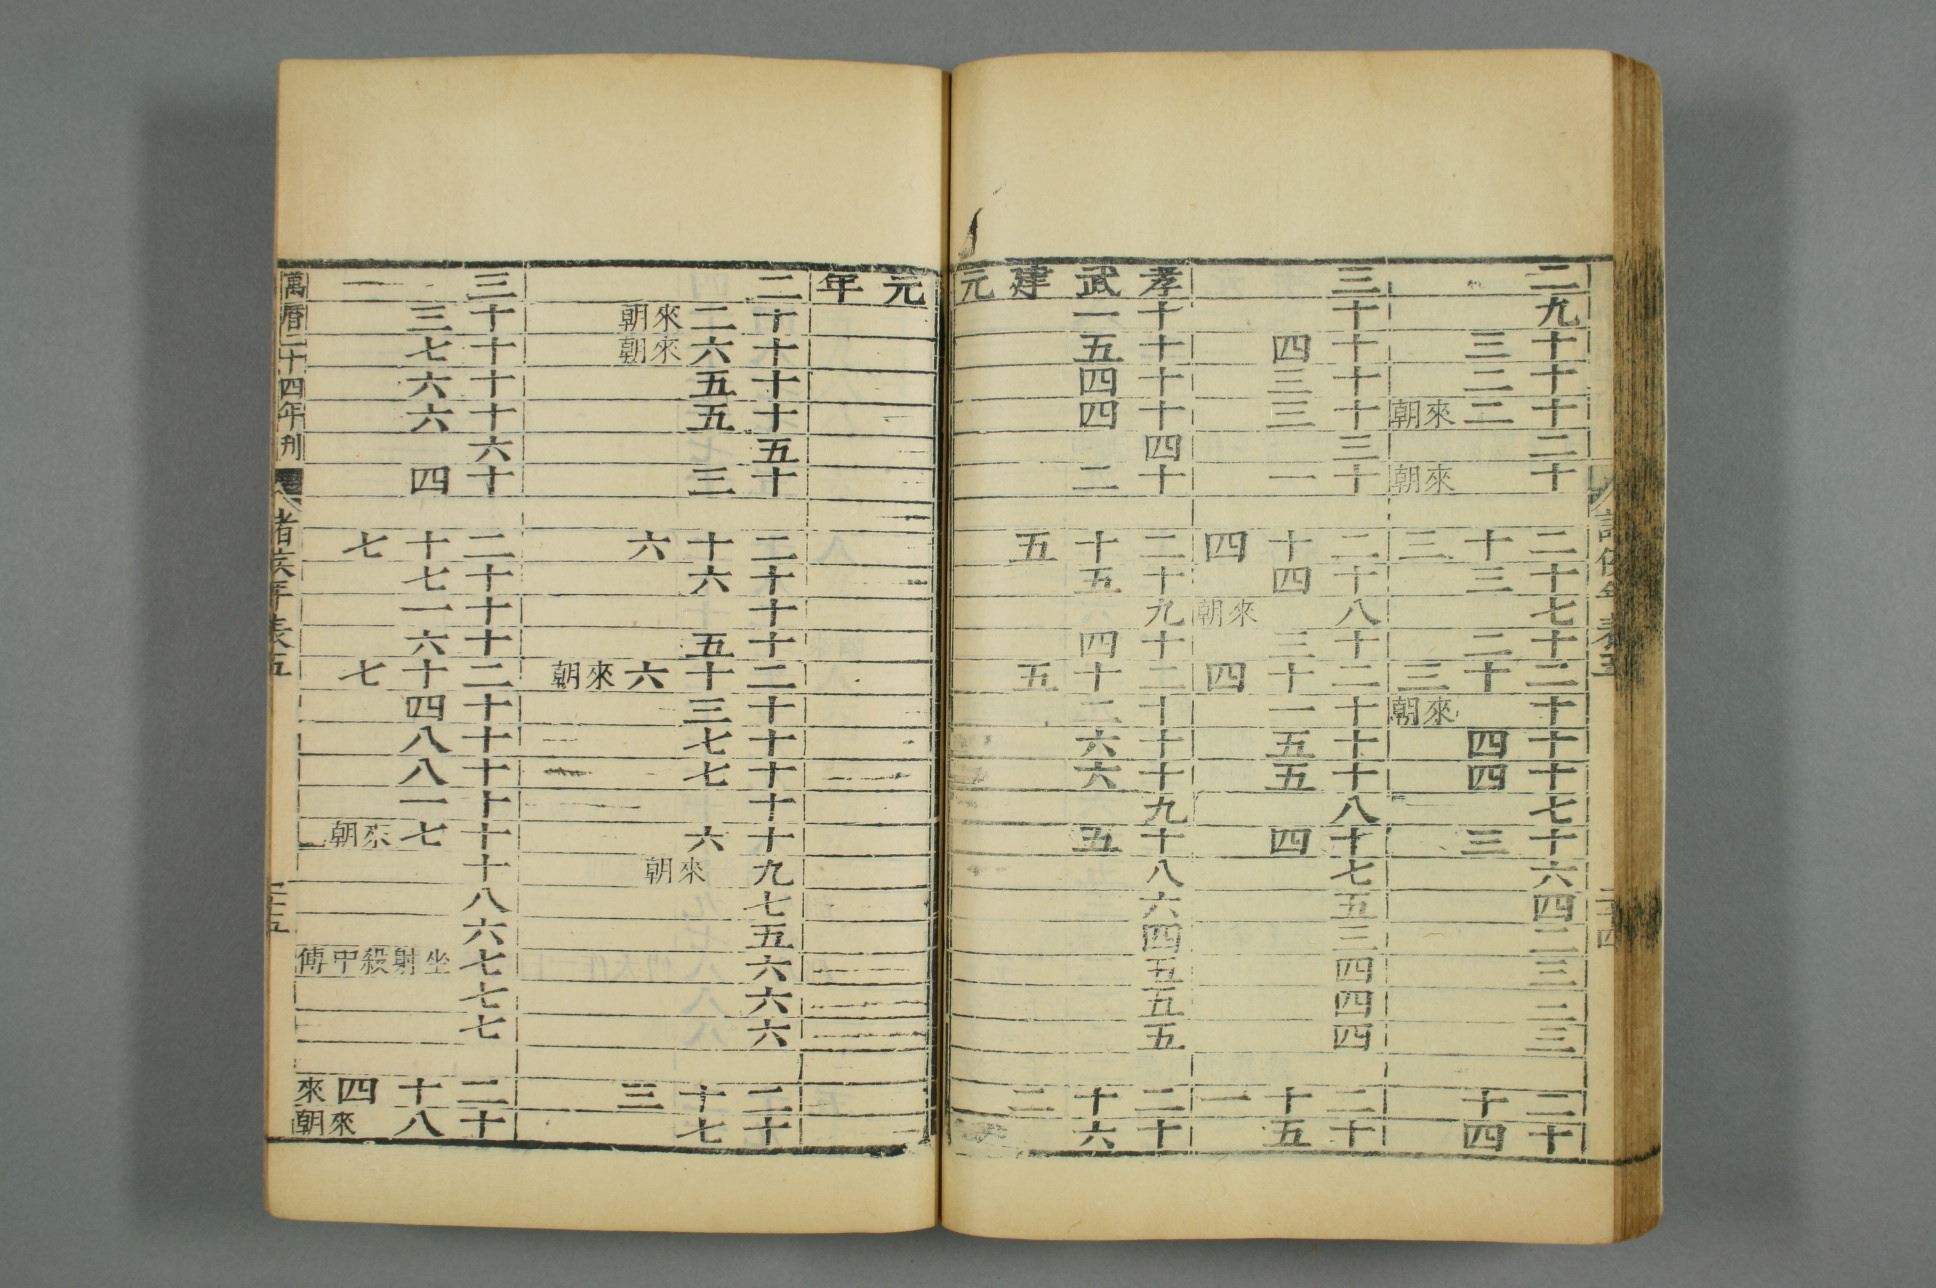 諸侯年表五
二十四
二
九
十三
十二
十二來朝
二
十來朝
二十三
十三
七
十二
二十三
十來朝
十四
十四
七
十三
六
四
二
三
二
三
二十
十四
三
十
十四
十三
十三
三
十一
二十四
十四
八來朝
十三
二十四
十一
十五
十五
八
十四
七
五
三
四
四
四
二十一
十五
孝武建元元年
十一
十五
十四
十四
四
十二
二十五
十五
九
十四
二十五
十二
十六
十六
九
十五
八
六
四
五
五
五
二十二
十六
二
十二來朝
十六來朝
十五
十五
五
十三
二十六
十六
十
十五
二十六來朝
十三
十七
十七
十
十六
九來朝
七
五
六
六
六
二十三
十七
三
十三
十七
十六
十六
六
十四
二十七
十七
十一
十六
二十七
十四
十八
十八
十一
十七來朝
十
八
六
七坐射殺中傅
七
七
二十四來
十八來朝
萬曆二十四年刊
諸侯年表五
二十五